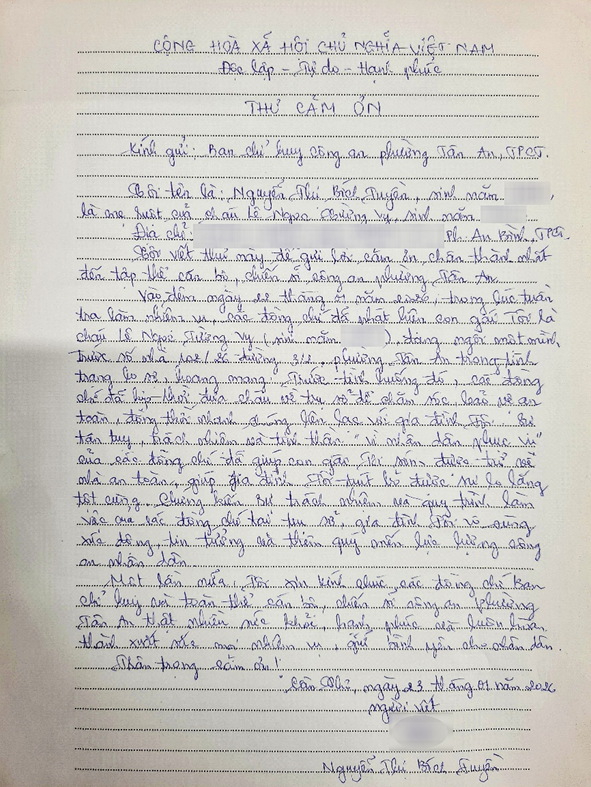 CỘNG HOÀ XÃ HỘI CHỦ NGHĨA VIỆT NAM
Độc lập - Tự do - Hạnh phúc
THƯ CẢM ƠN
Kính gửi: Ban chỉ huy công an phường Tân An, TPCT.
Tôi tên là: Nguyễn Thị Bích Tuyền, sinh năm
là mẹ ruột của cháu Lê Ngọc Tường Vy, sinh năm
Địa chỉ: Ph. An Bình, TPCT.
Tôi viết thư này để gửi lời cảm ơn chân thành nhất
đến tập thể cán bộ, chiến sĩ công an phường Tân An.
Vào đêm ngày 22 tháng 01 năm 2026, trong lúc tuần
tra làm nhiệm vụ, các đồng chí đã phát hiện con gái Tôi là
cháu Lê Ngọc Tường Vy (sinh năm ) đang ngồi một mình
trước số nhà đường 3/2, phường Tân An trong tình
trạng lo sợ, hoang mang. Trước tình huống đó, các đồng
chí đã kịp thời đưa cháu về trụ sở để chăm sóc, bảo vệ an
toàn, đồng thời nhanh chóng liên lạc với gia đình Tôi. Sự
tận tụy, trách nhiệm và tinh thần "vì nhân dân phục vụ"
của các đồng chí đã giúp con gái Tôi sớm được trở về
nhà an toàn, giúp gia đình Tôi trút bỏ được sự lo lắng
tột cùng. Chứng kiến sự trách nhiệm và quy trình làm
việc của các đồng chí tại trụ sở, gia đình Tôi vô cùng
xúc động, tin tưởng và thêm quý mến lực lượng công
an nhân dân.
Một lần nữa, Tôi xin kính chúc các đồng chí Ban
chỉ huy và toàn thể cán bộ, chiến sĩ công an phường
Tân An thật nhiều sức khỏe, hạnh phúc và luôn hoàn
thành xuất sắc mọi nhiệm vụ, giữ bình yên cho nhân dân.
Trân trọng cảm ơn!
Cần Thơ, ngày 23 tháng 01 năm 2026
người viết
Nguyễn Thị Bích Tuyền